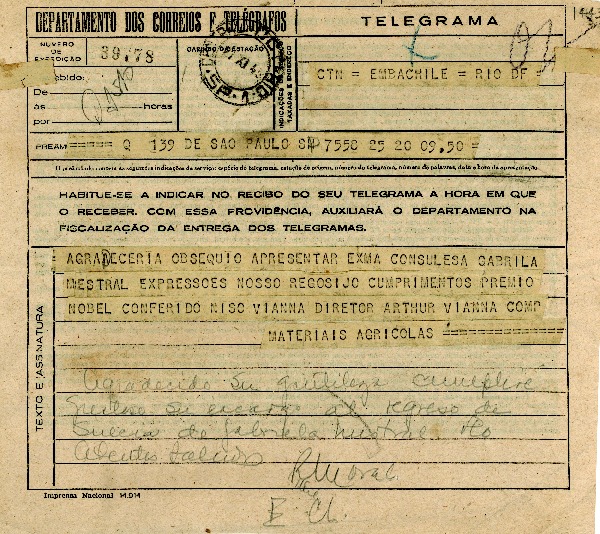 DEPARTAMENTO DOS CORREIOS E TELÉGRAFOS
TELEGRAMA
NUMERO DE EXPEDIÇÃO
39778
CARIMBO DA ESTAÇÃO
INDICAÇÕES DE SERVIÇO TAXADAS E ENDEREÇO
CTN = EMBACHILE = RIO DF
De
às horas
por
PREAM ===== Q 139 DE SAO PAULO SP 7558 25 20 09,50 =
HABITUE-SE A INDICAR NO RECIBO DO SEU TELEGRAMA A HORA EM QUE
O RECEBER. COM ESSA PROVIDÊNCIA, AUXILIARÁ O DEPARTAMENTO NA
FISCALIZAÇÃO DA ENTREGA DOS TELEGRAMAS.
TEXTO E ASSINATURA
AGRADECERIA OBSEQUIO APRESENTAR EXMA CONSULESA GABRILA
MESTRAL EXPRESSOES NOSSO REGOSIJO CUMPRIMENTOS PREMIO
NOBEL CONFERIDO NISO VIANNA DIRETOR ARTHUR VIANNA COMP
MATERIAIS AGRICOLAS
Agradecido su gentileza cumpliré
su encargo al regreso de
Suecia de Gabriela Mistral.
Atentos saludos
E. Ch.
Imprensa Nacional 14.914